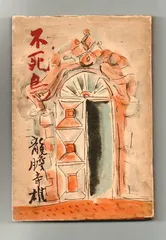 不死鳥
龍膽寺雄